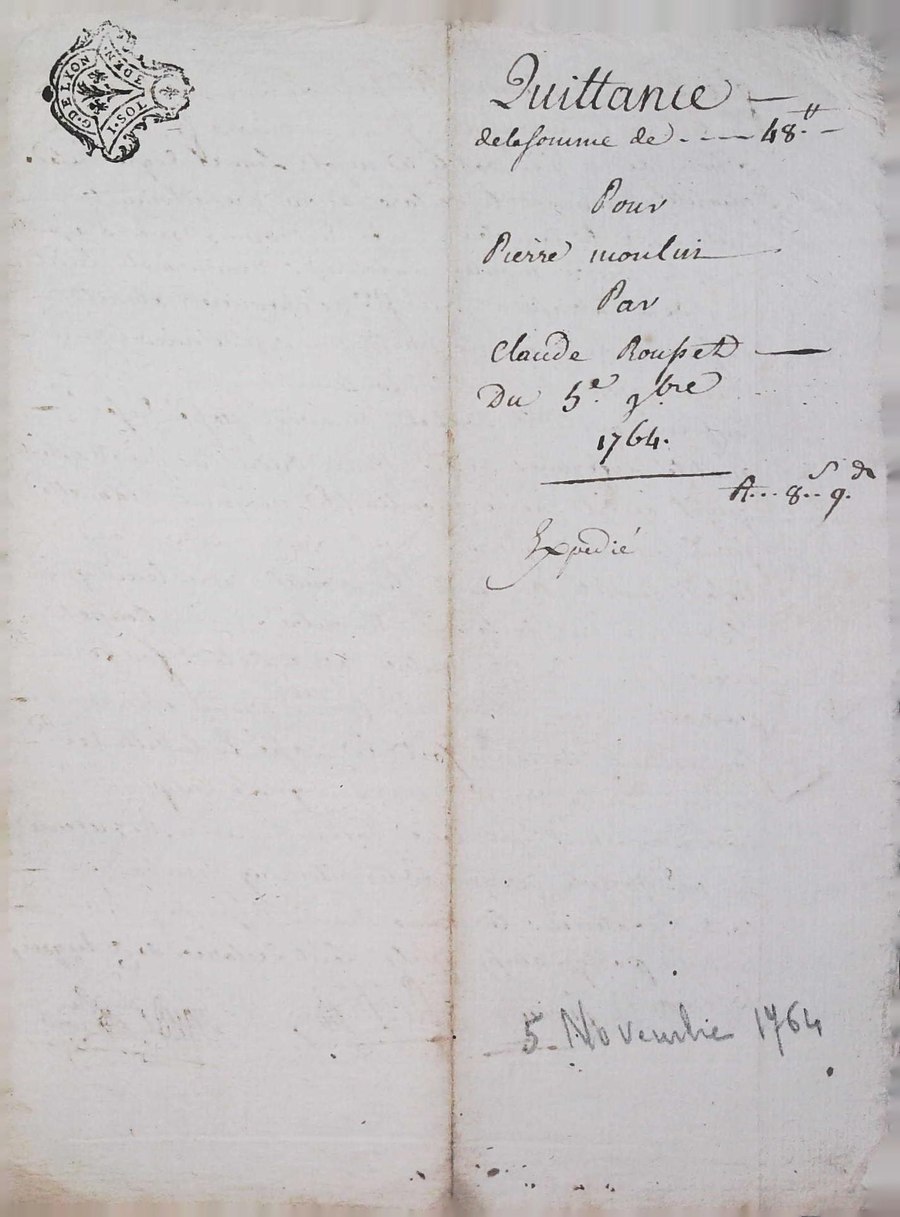 G. DE LYON
DEUX
SOLS
Quittance —
de la somme de - - - - 48.ᵗᵗ -
Pour
Pierre moulin
Par
Claude Rousset —
Du 5.ᵉ 9bre
1764.
A... 8ˢ.. 9.ᵈ
Expedié
5. Novembre 1764